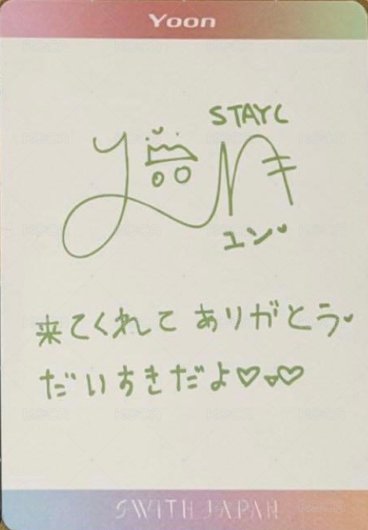 Yoon
STAYC
ユン
来てくれて ありがとう
だいちきだよ♡♡
SWITH JAPAN